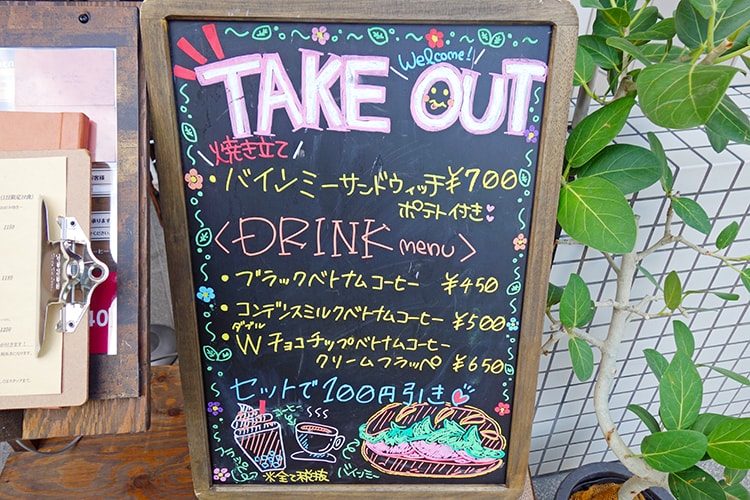 Welcome!
TAKE OUT
焼き立て
・バインミーサンドウィッチ¥700
ポテト付き
<DRINK menu>
・ブラックベトナムコーヒー ¥450
・コンデンスミルクベトナムコーヒー ¥500
ダブル
・Wチョコチップベトナムコーヒー
クリームフラッペ ¥650
セットで100円引き
コーヒー
フラッペ
※全て税抜
バインミー